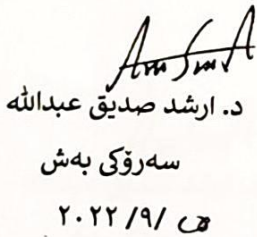 د. ارشد صدیق عبدالله
سەرۆکی بەش
٢٠٢٢ /٩/